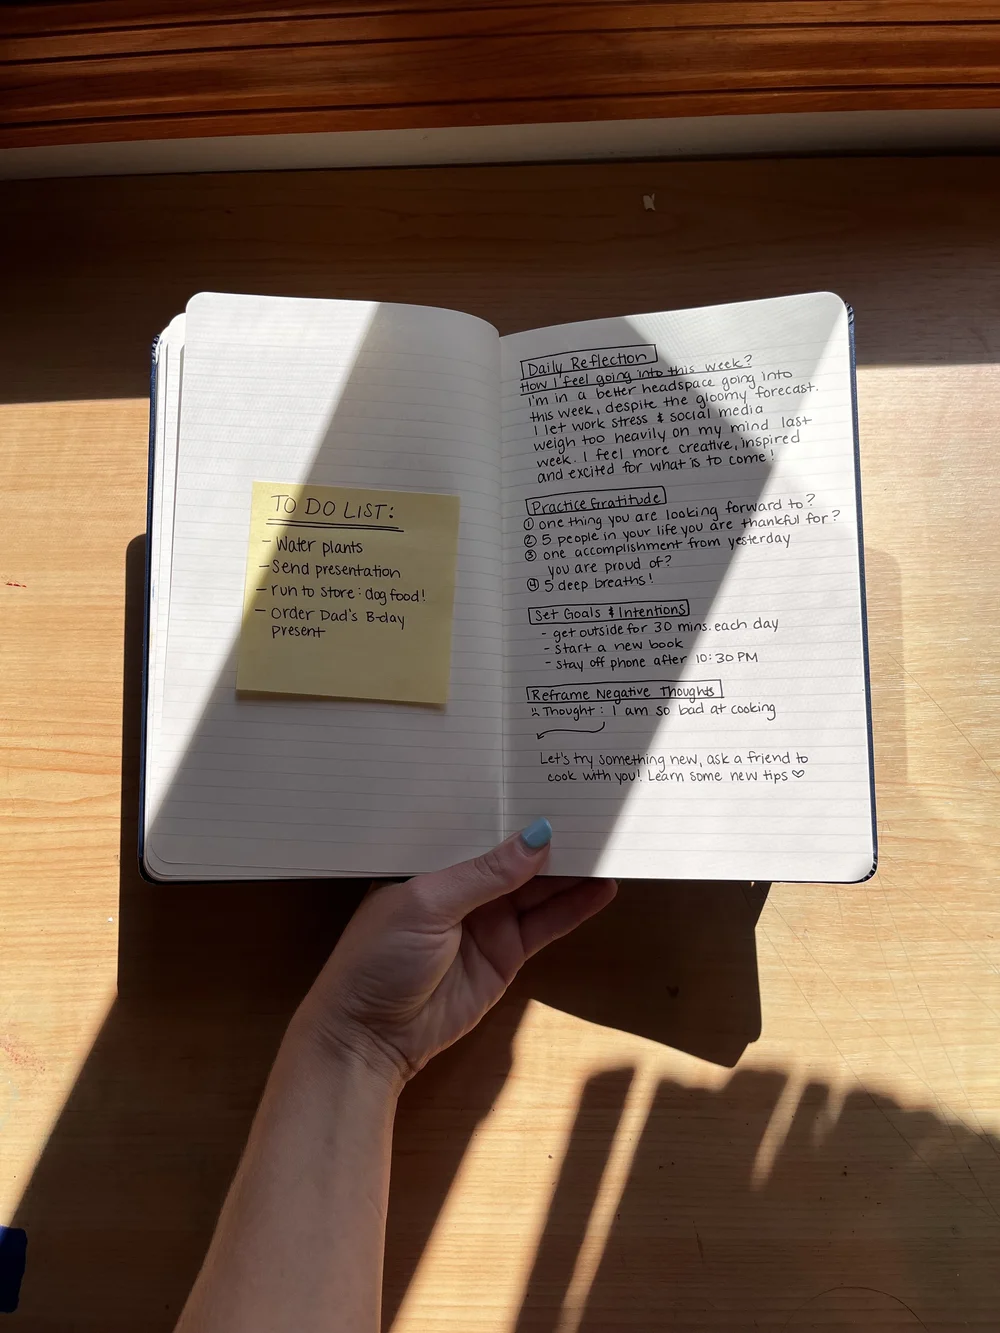 TO DO LIST:
- Water plants
- Send presentation
- run to store: dog food!
- order Dad's B-day
present
Daily Reflection
How I feel going into this week?
I'm in a better headspace going into
this week, despite the gloomy forecast.
I let work stress & social media
weigh too heavily on my mind last
week. I feel more creative, inspired
and excited for what is to come!
Practice Gratitude
① one thing you are looking forward to?
② 5 people in your life you are thankful for?
③ one accomplishment from yesterday
you are proud of?
④ 5 deep breaths!
Set Goals & Intentions
- get outside for 30 mins. each day
- start a new book
- stay off phone after 10:30 PM
Reframe Negative Thoughts
Thought: I am so bad at cooking
Let's try something new, ask a friend to
cook with you! Learn some new tips ♡